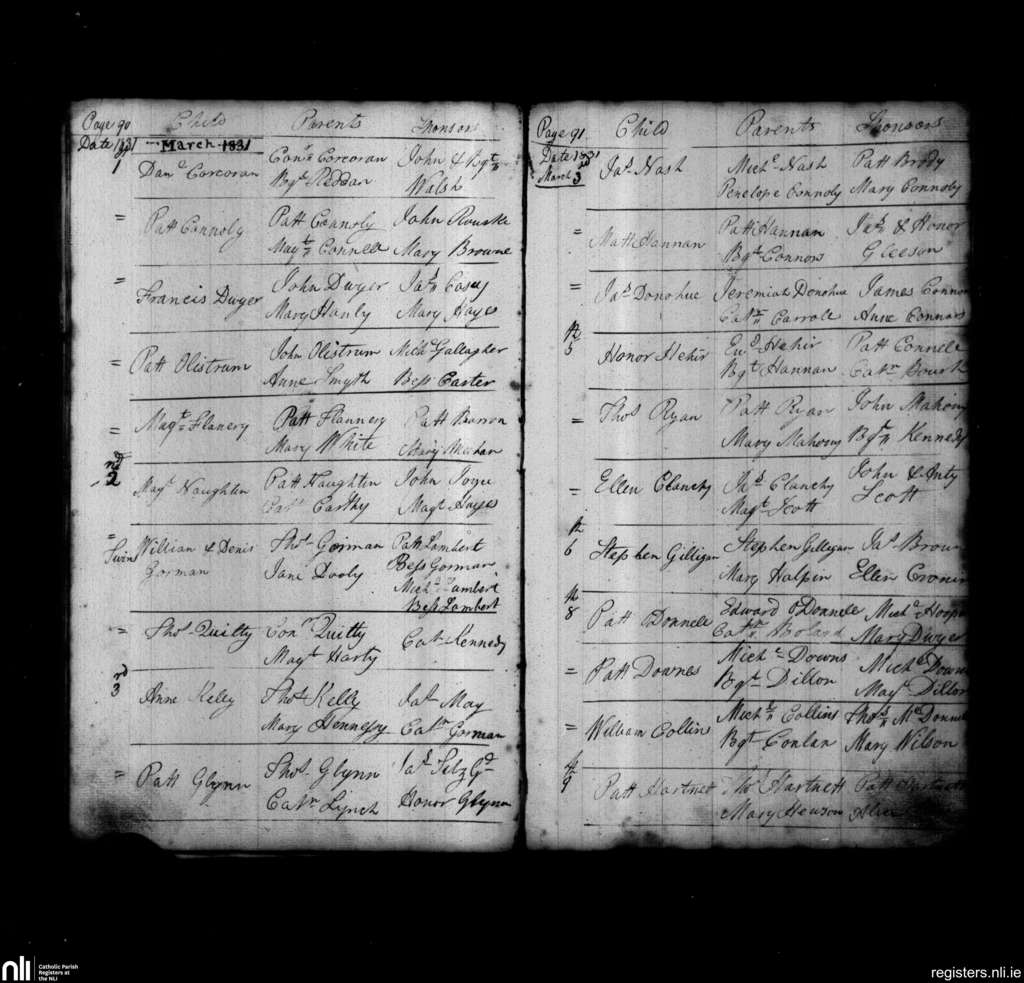 Page 90 Child Parents Sponsors
Date 1831 March 1831
1st Danl Corcoran Conrs Corcoran John & Bgt
Bgt Reddan Walsh
= Patt Connoly Patt Connoly John Rourke
Magt Connell Mary Browne
= Francis Dwyer John Dwyer Jas Casey
Mary Hanly Mary Hayes
= Patt Olistrum John Olistrum Michl Gallagher
Anne Smyth Bess Carter
= Magt Flanery Patt Flannery Patt Barron
Mary White Mary Meehan
2nd Magt Naughtin Patt Haughtin John Joyce
Cath Carthy Magt Hayes
= Twins William & Denis Thos Gorman Patt Lambert
Gorman Jane Dooly Bess Gorman
Michl Lambert
Bess Lambert
= Thos Quilty Conrs Quilty Cath Kennedy
Magt Harty
3rd Anne Kelly Thos Kelly Jas May
Mary Hennessy Cath Gorman
= Patt Glynn Thos Glynn Jas Fitz Gd
Cathn Lynch Honor Glynn
Page 91 Child Parents Sponsors
Date 1831
March 3rd Jas Nash Michl Nash Patt Brody
Penelope Connoly Mary Connoly
= Matt Hannan Patt Hannan Jas & Honor
Bgt Connors Gleeson
= Jas Donohue Jeremiah Donohue James Connor
Cathn Carrole Anne Connors
5th Honor Hehir Hehir Patt Connele
Bgt Hannan Cathn Bourk
= Thos Ryan Patt Ryan John Mahony
Mary Mahony Bgt Kennedy
= Ellen Clanchy Thos Clanchy John & Anty
Magt Scott Scott
6th Stephen Gilligan Stephen Gilligan Jas Brown
Mary Halpin Ellen Cronin
8th Patt ODonnele Edward ODonnele Michl Hooper
Cathn Boland Mary Dwyer
= Patt Downes Michl Downs Michl Downs
Bgt Dillon Magt Dillon
= William Collins Michl Collins Thos McDonnel
Bgt Conlan Mary Wilson
9th Patt Hartnet Thos Hartnett Patt Hartnett
Mary Hewson Alice
nli Catholic Parish
Registers at
the NLI
registers.nli.ie